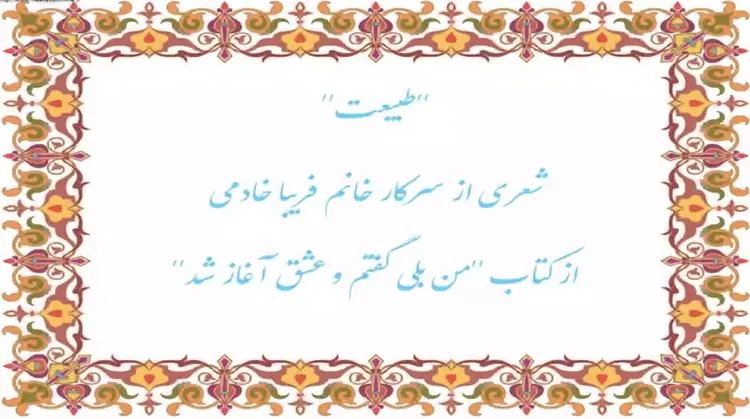 "طبیعت"
شعری از سرکار خانم فریبا خادمی
از کتاب "من بلی گفتم و عشق آغاز شد"